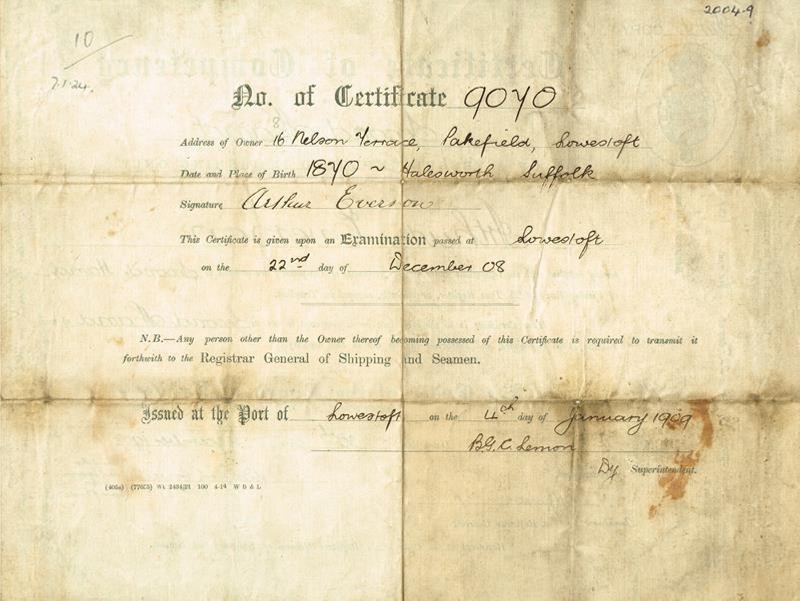 2004.9
10
7.1.24.
No. of Certificate 9070
8
Address of Owner 16 Nelson Terrace, Pakefield, Lowestoft
Date and Place of Birth 1870 ~ Halesworth Suffolk
Signature Arthur Everson
This Certificate is given upon an Examination passed at Lowestoft
on the 22nd day of December 08
N.B.—Any person other than the Owner thereof becoming possessed of this Certificate is required to transmit it
forthwith to the Registrar General of Shipping and Seamen.
Issued at the Port of Lowestoft on the 4th day of January 1909
B.G.C. Lemon
Dy Superintendent.
100 4-14 W B & L